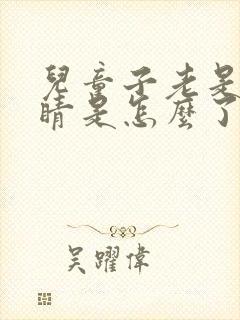 兒童子老是
睛是怎麼了
吴躍偉